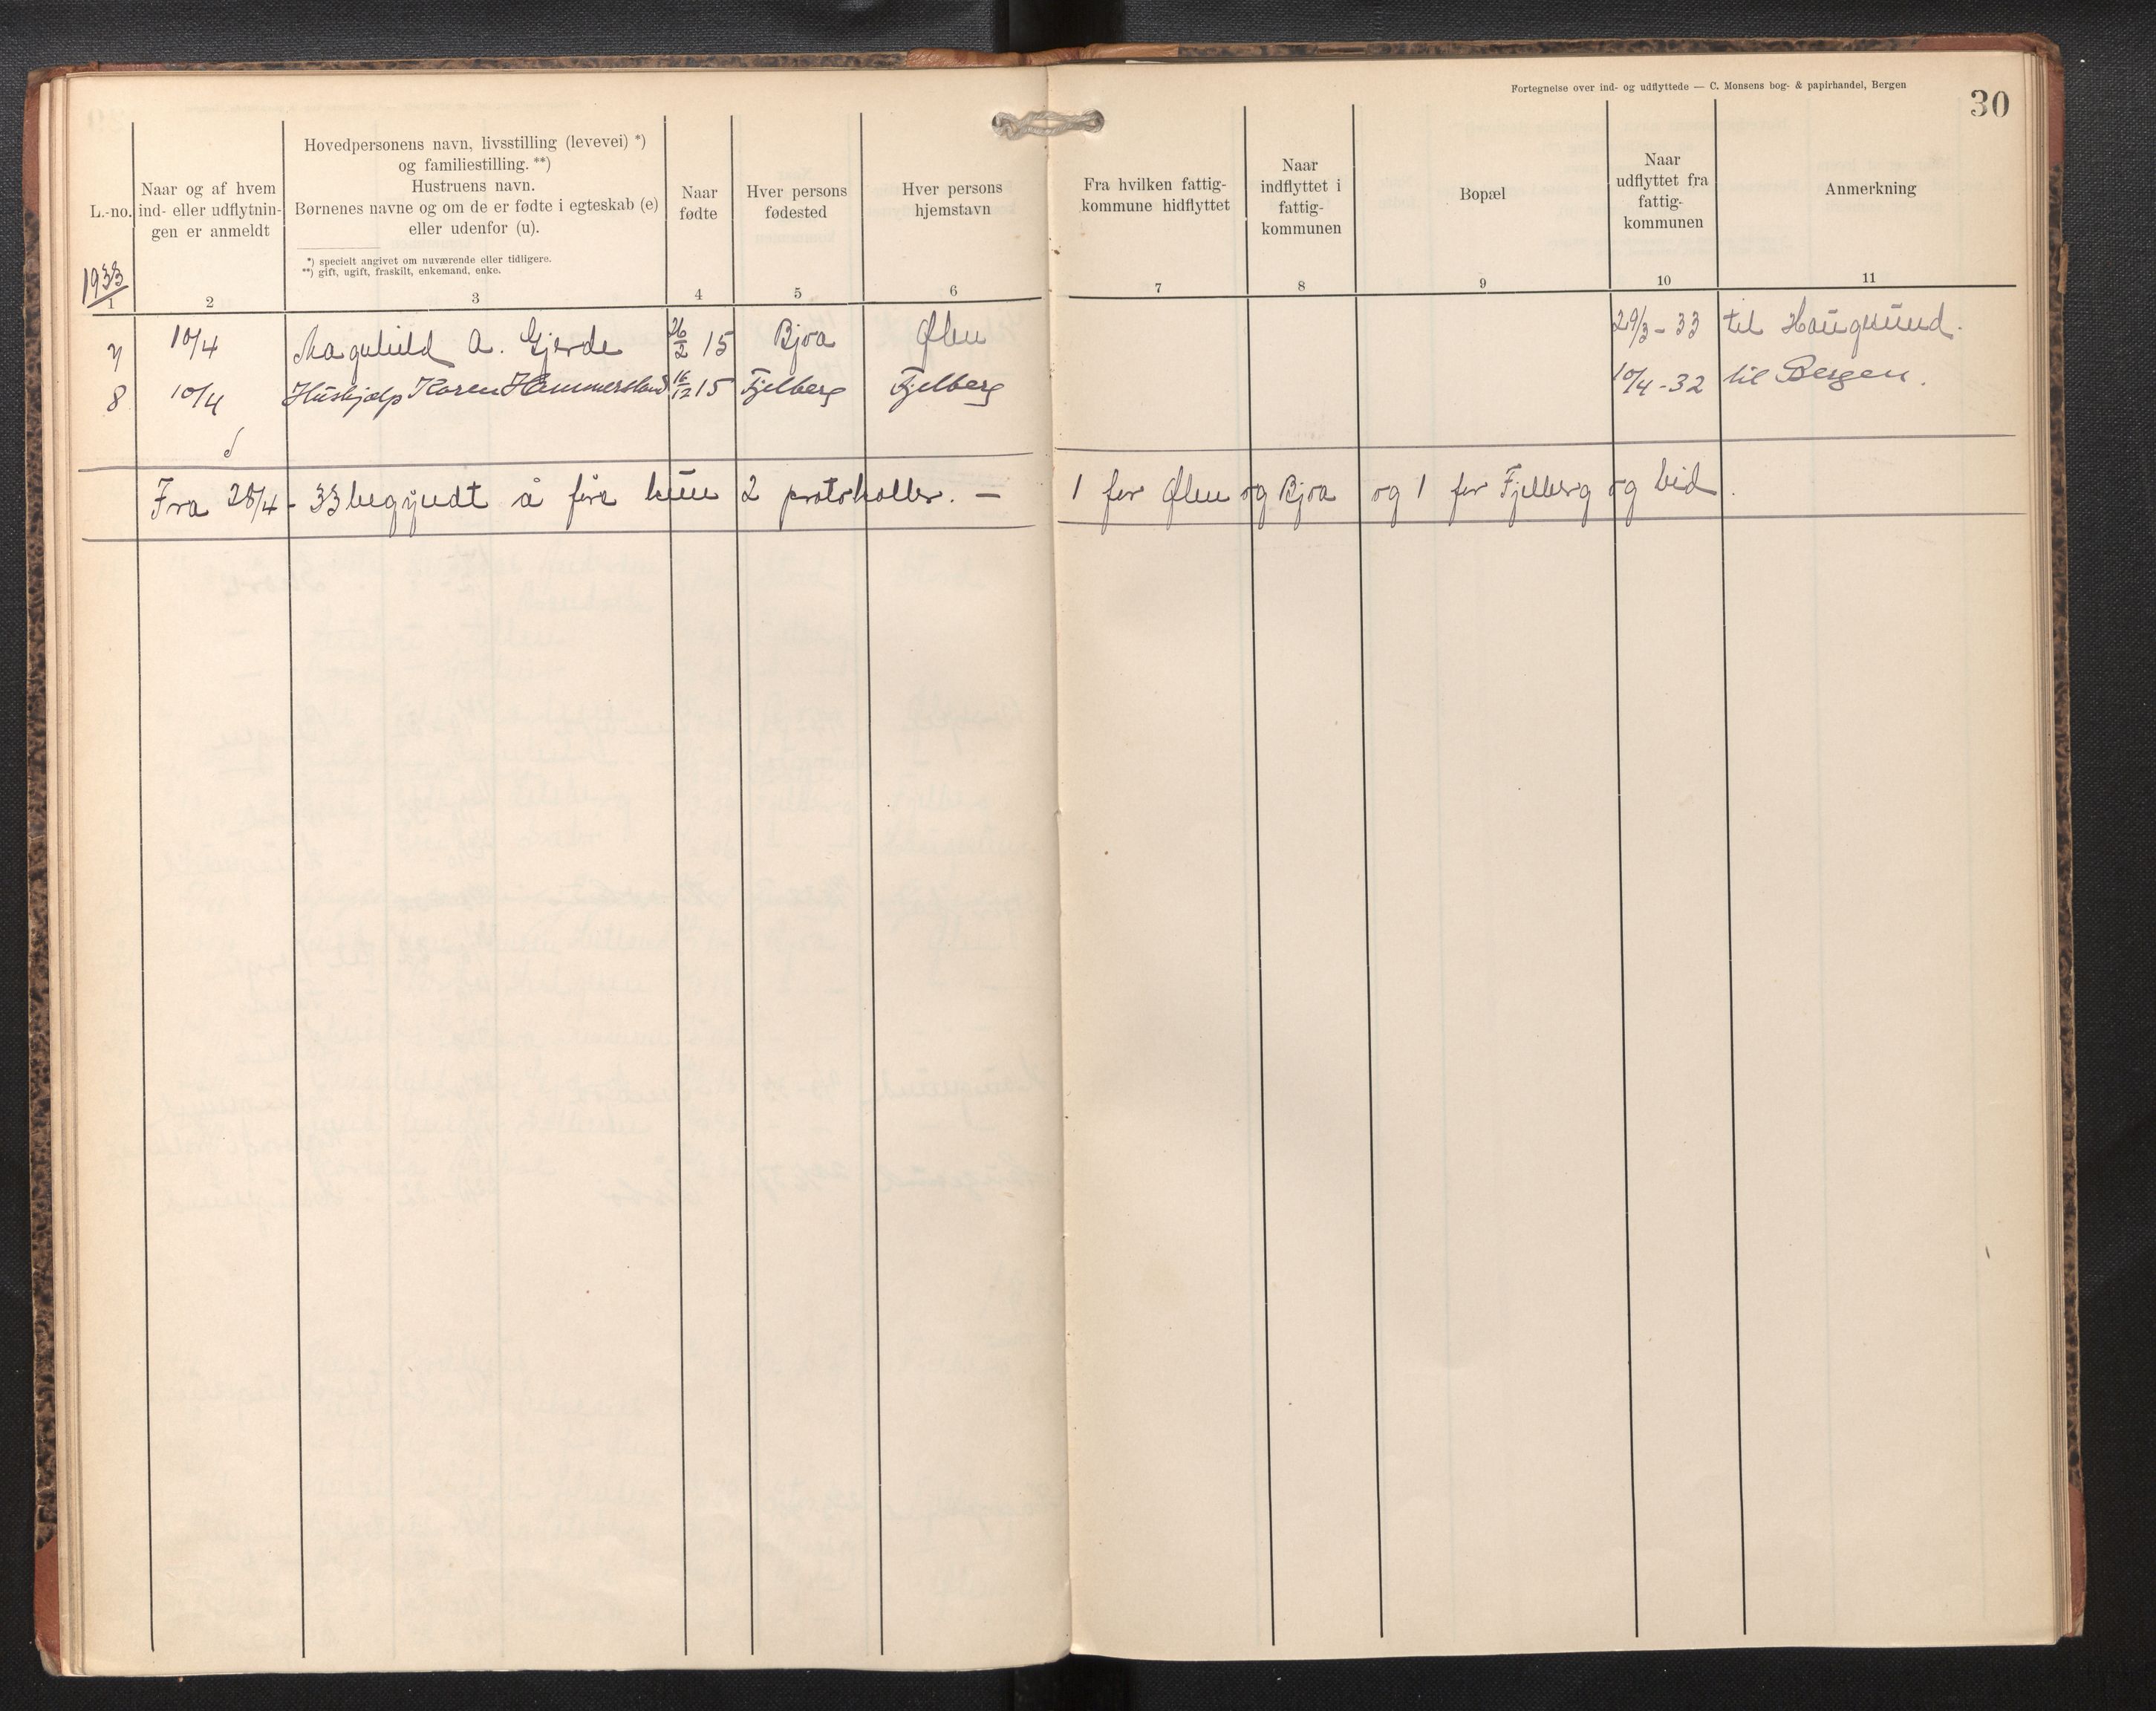 Fortegnelse over ind- og udflyttede — C. Monsens bog- & papirhandel, Bergen
30
L.-no.
Naar og af hvem
ind- eller udflytnin-
gen er anmeldt
Hovedpersonens navn, livsstilling (levevei) *)
og familiestilling. **)
Hustruens navn.
Børnenes navne og om de er fødte i egteskab (e)
eller udenfor (u).
*) specielt angivet om nuværende eller tidligere.
**) gift, ugift, fraskilt, enkemand, enke.
Naar
fødte
Hver persons
fødested
Hver persons
hjemstavn
Fra hvilken fattig-
kommune hidflyttet
Naar
indflyttet i
fattig-
kommunen
Bopæl
Naar
udflyttet fra
fattig-
kommunen
Anmerkning
1933
1 2 3 4 5 6 7 8 9 10 11
7 10/4 Magnhild A. Gjerde 26/2 15 Bjoa Ølen 29/3-33 til Haugesund.
8 10/4 Hushjælp Karen Hammersland 16/12 15 Fjelberg Fjelberg 10/4-32 til Bergen.
Fra 28/4-33 begyndt å føre 2 protokoller. — 1 for Ølen og Bjoa og 1 for Fjelberg og Eid.